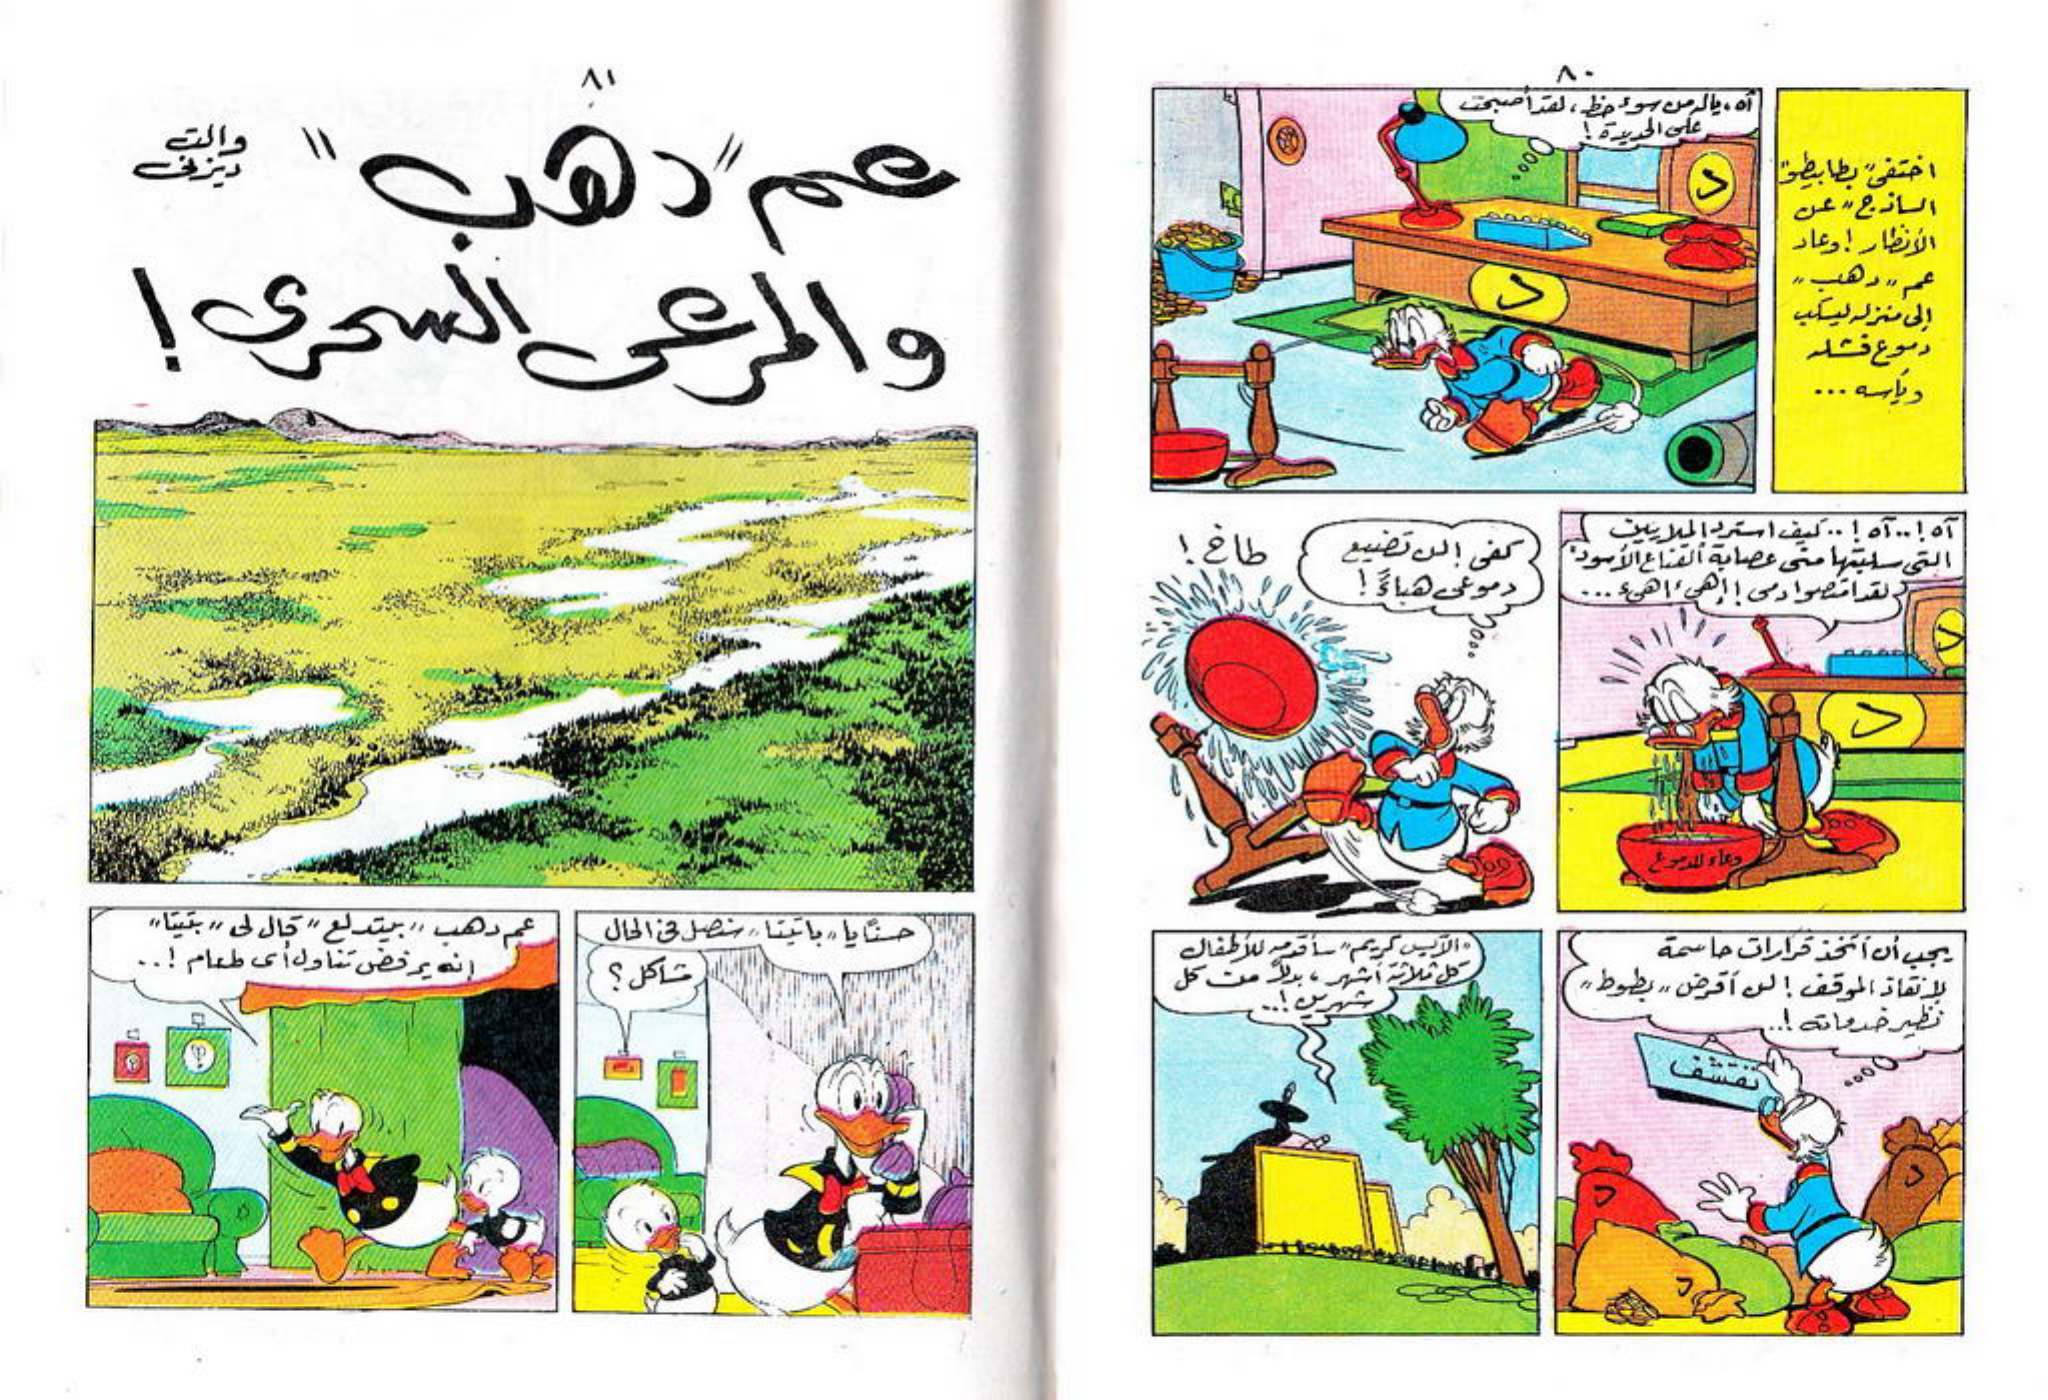 ٨٠
اختفى "بطابيطو"
الساذج" عن
الأنظار! وعاد
عم "دهب"
إلى منزله ليسكب
دموع فشله
ويأسه ...
آه، ياله من سوء حظ، لقد أصبحت
على الحديدة!
د
د
آه!.. آه!.. كيف استرد الملايين
التى سلبتها منى عصابة القناع الأسود؟
لقد امتصوا دمى! إهئ، إهئ ...
د
د
وعاء للدموع
كفى! لن تضيع
دموعى هباءً!
طاخ!
يجب أن أتخذ قرارات حاسمة
لإنقاذ الموقف! لن أقرض "بطوط"
نظير خدماته!..
تقشف
د
د
د
"الآيس كريم" سأقدمه للأطفال
كل ثلاثة أشهر، بدلاً من كل
شهرين!..
٨١
والت
ديزنى
عم "دهب"
والمرعى السحرى!
حسنًا يا "باتيتا"، سنصل فى الحال
مشاكل؟
عم دهب "بيتدلع" قال لى "بتيتا"
إنه يرفض تناول أى طعام!..